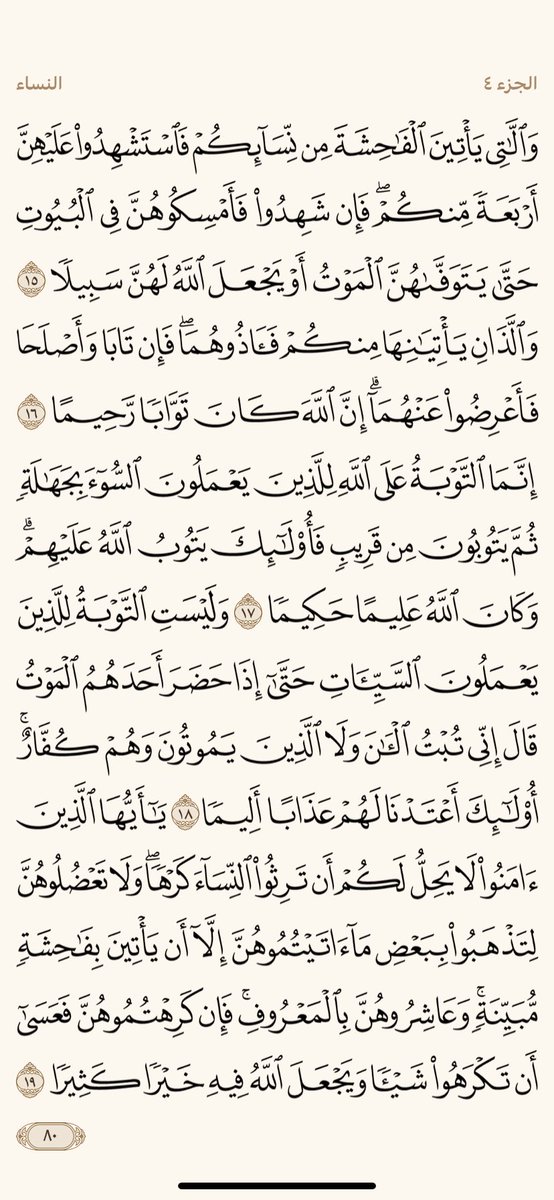 الجزء ٤
النساء
وَٱلَّٰتِى يَأۡتِينَ ٱلۡفَٰحِشَةَ مِن نِّسَآئِكُمۡ فَٱسۡتَشۡهِدُواْ عَلَيۡهِنَّ
أَرۡبَعَةٗ مِّنكُمۡۖ فَإِن شَهِدُواْ فَأَمۡسِكُوهُنَّ فِى ٱلۡبُيُوتِ
حَتَّىٰ يَتَوَفَّىٰهُنَّ ٱلۡمَوۡتُ أَوۡ يَجۡعَلَ ٱللَّهُ لَهُنَّ سَبِيلٗا ١٥
وَٱلَّذَانِ يَأۡتِيَٰنِهَا مِنكُمۡ فَـَٔاذُوهُمَاۖ فَإِن تَابَا وَأَصۡلَحَا
فَأَعۡرِضُواْ عَنۡهُمَآۗ إِنَّ ٱللَّهَ كَانَ تَوَّابٗا رَّحِيمًا ١٦
إِنَّمَا ٱلتَّوۡبَةُ عَلَى ٱللَّهِ لِلَّذِينَ يَعۡمَلُونَ ٱلسُّوٓءَ بِجَهَٰلَةٖ
ثُمَّ يَتُوبُونَ مِن قَرِيبٖ فَأُوْلَٰٓئِكَ يَتُوبُ ٱللَّهُ عَلَيۡهِمۡۗ
وَكَانَ ٱللَّهُ عَلِيمًا حَكِيمٗا ١٧ وَلَيۡسَتِ ٱلتَّوۡبَةُ لِلَّذِينَ
يَعۡمَلُونَ ٱلسَّيِّـَٔاتِ حَتَّىٰٓ إِذَا حَضَرَ أَحَدَهُمُ ٱلۡمَوۡتُ
قَالَ إِنِّى تُبۡتُ ٱلۡـَٰٔنَ وَلَا ٱلَّذِينَ يَمُوتُونَ وَهُمۡ كُفَّارٌۚ
أُوْلَٰٓئِكَ أَعۡتَدۡنَا لَهُمۡ عَذَابًا أَلِيمٗا ١٨ يَٰٓأَيُّهَا ٱلَّذِينَ
ءَامَنُواْ لَا يَحِلُّ لَكُمۡ أَن تَرِثُواْ ٱلنِّسَآءَ كَرۡهٗاۖ وَلَا تَعۡضُلُوهُنَّ
لِتَذۡهَبُواْ بِبَعۡضِ مَآ ءَاتَيۡتُمُوهُنَّ إِلَّآ أَن يَأۡتِينَ بِفَٰحِشَةٖ
مُّبَيِّنَةٖۚ وَعَاشِرُوهُنَّ بِٱلۡمَعۡرُوفِۚ فَإِن كَرِهۡتُمُوهُنَّ فَعَسَىٰٓ
أَن تَكۡرَهُواْ شَيۡـٔٗا وَيَجۡعَلَ ٱللَّهُ فِيهِ خَيۡرٗا كَثِيرٗا ١٩
٨٠